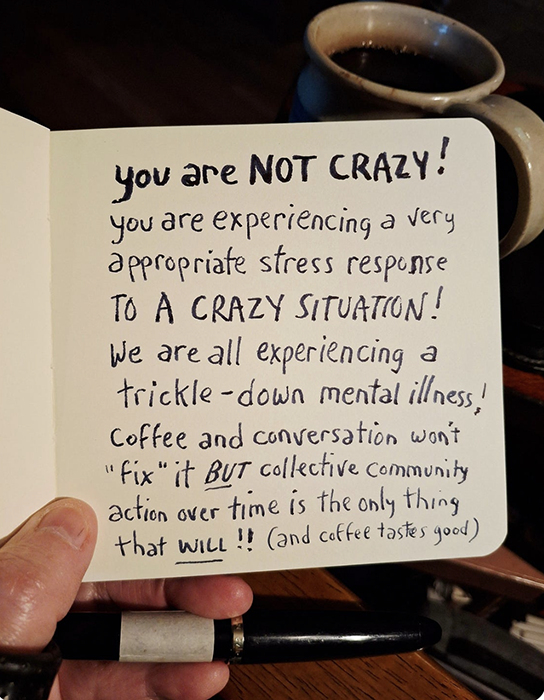 you are NOT CRAZY!
you are experiencing a very
appropriate stress response
TO A CRAZY SITUATION!
We are all experiencing a
trickle-down mental illness!
Coffee and conversation won't
"fix" it BUT collective community
action over time is the only thing
that WILL!! (and coffee tastes good)